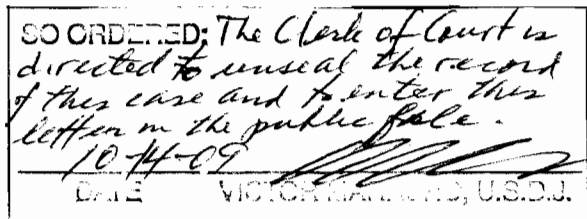 SO ORDERED: The Clerk of Court is
directed to unseal the record
of this case and to enter this
letter in the public file.
10-14-09
DATE VICTOR MARRERO, U.S.D.J.